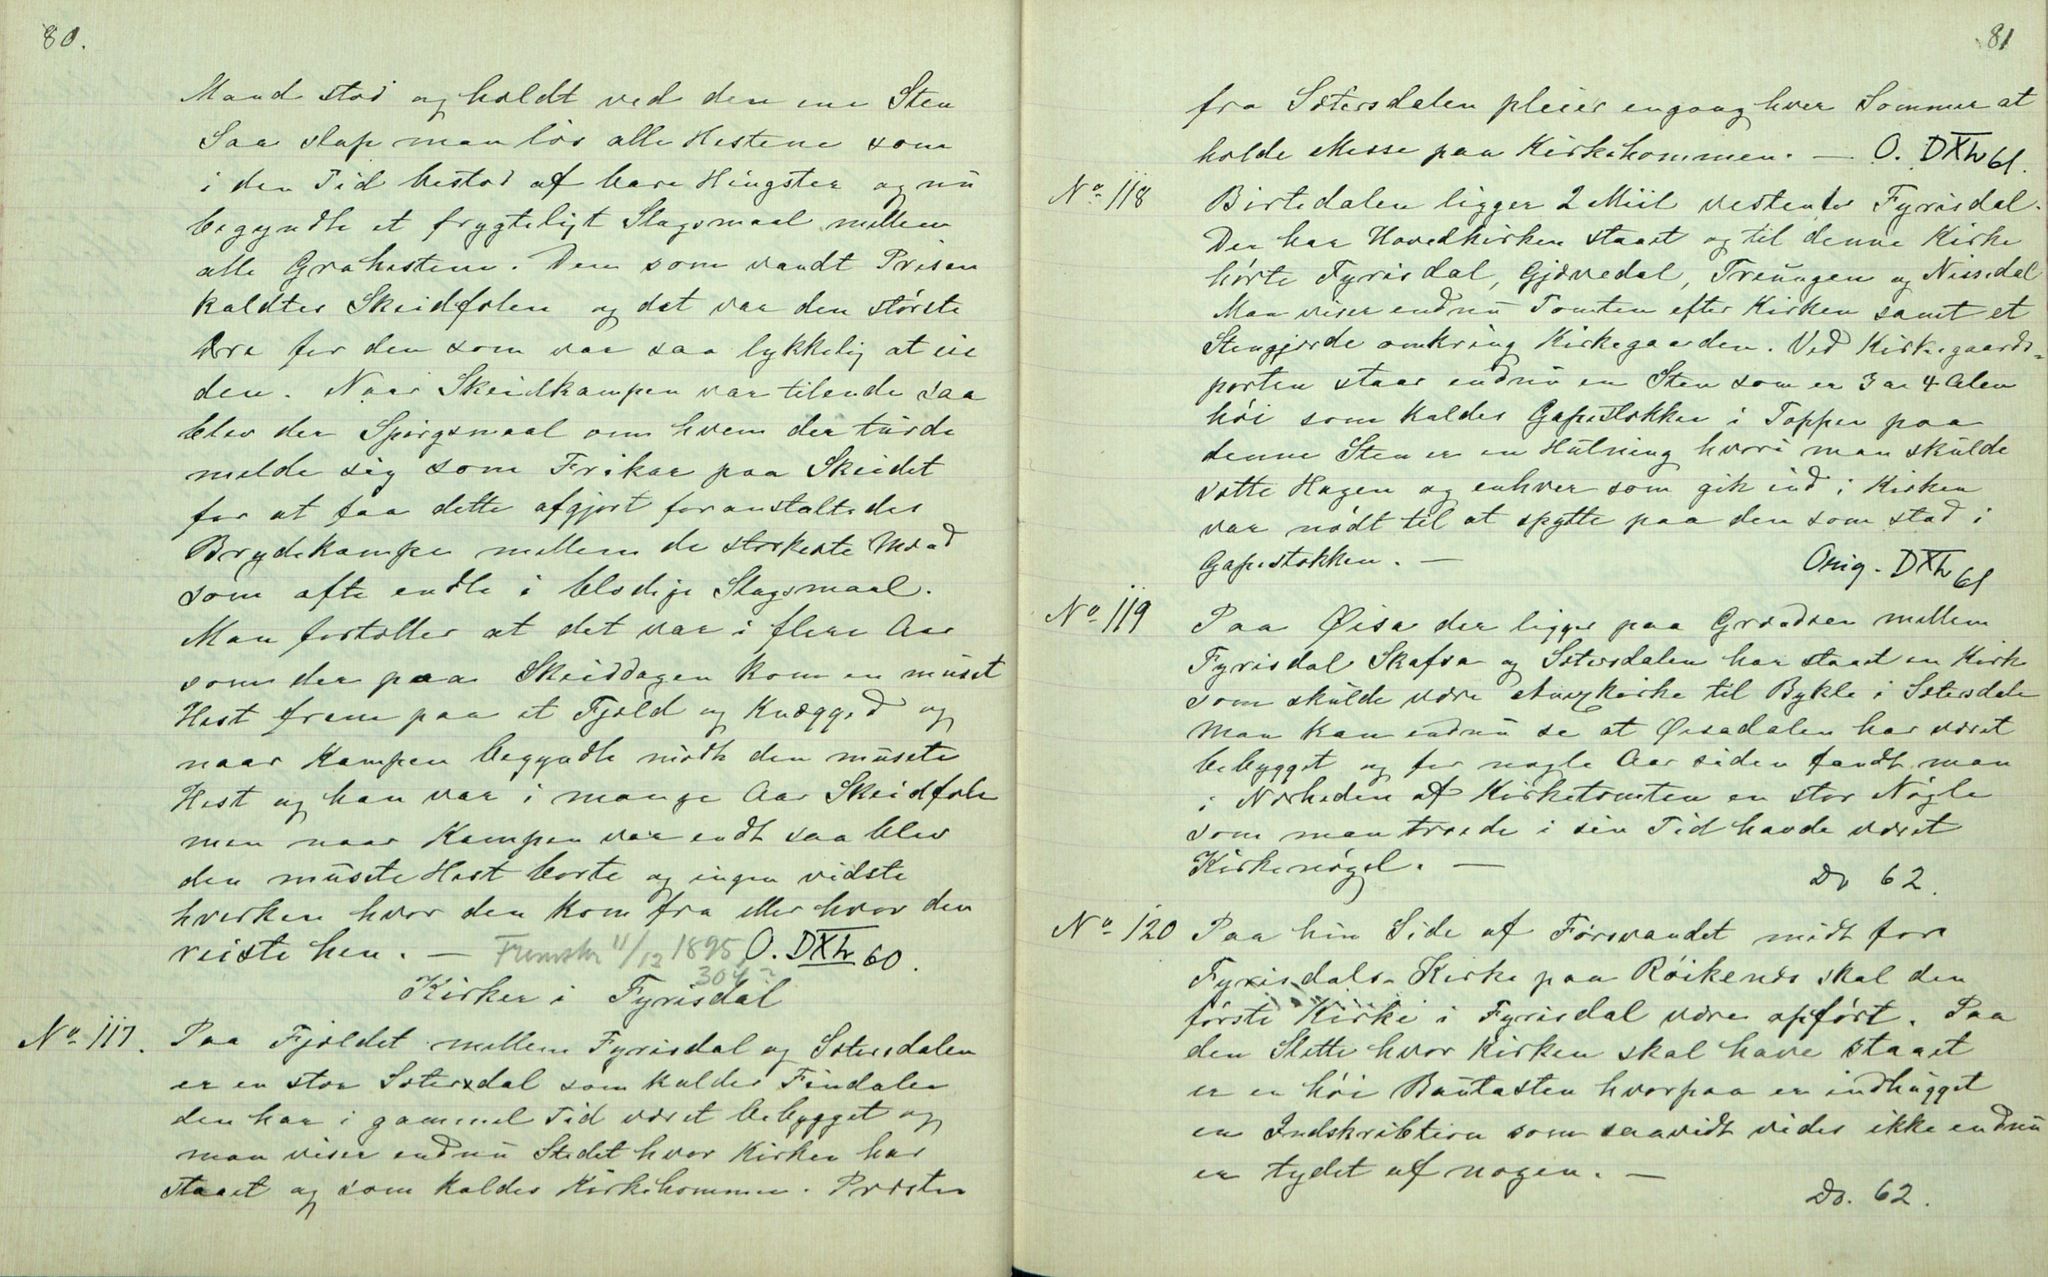 80.
Mand stod og holdt ved den ene Sten
Saa slap man løs alle Hestene som
i den Tid bestod af bare Hingster og nu
begyndte et frygteligt Slagsmaal mellem
alle Grahestene. Den som vandt Prisen
kaldtes Skeidfolen og det var den største
Ære for den som var saa lykkelig at eie
den. Naar Skeidkampen var tilende saa
blev der Spørgsmaal om hvem der turde
melde sig som Frikar paa Skeidet
for at faa dette afgjort foranstaltedes
Brydekampe mellem de stærkeste Mænd
som ofte endte i blodige Slagsmaal.
Man fortæller at det var i flere Aar
som der paa Skeiddagen kom en muset
Hest frem paa et Fjeld og Knægged og
naar Kampen begyndte mødte den musete
Hest og han var i mange Aar Skeidfole
men naar Kampen var endt saa blev
den musete Hest borte og ingen vidste
hverken hvor den kom fra eller hvor den
reiste hen. — 11/12 1895 O. DXL 60.
304
Kirker i Fyrisdal
No 117. Paa Fjeldet mellem Fyrisdal og Sætersdalen
er en stor Sætersdal som kaldes Findalen
den har i gammel Tid været bebygget og
man viser endnu Stedet hvor Kirken har
staaet og som kaldes Kirkehommen. Præsten
81
fra Sætersdalen pleier engang hver Sommer at
holde Messe paa Kirkehommen. — O. DXL 61.
No 118 Birtedalen ligger 2 Miil vestenfor Fyrisdal.
Der har Hovedkirken staaet og til denne Kirke
hørte Fyrisdal, Gjøvedal, Treungen og Nissedal
Man viser endnu Tomten efter Kirken samt et
Stengjerde omkring Kirkegaarden. Ved Kirkegaards-
porten staar endnu en Sten som er 3 a 4 Alen
høi som kaldes Gapestokken i Toppen paa
denne Sten er en Hulning hvori man skulde
sætte Hagen og enhver som gik ind i Kirken
var nødt til at spytte paa den som stod i
Gapestokken. — Orig. DXL 61
No 119 Paa Øisæ der ligger paa Grændsen mellem
Fyrisdal Skafsa og Sætersdalen har staaet en Kirke
som skulde være Anexkirke til Bykle i Sætersdalen
Man kan endnu se at Øisadalen har været
bebygget og for nogle Aar siden fandt man
i Nærheden af Kirketomten en stor Nøgle
som man troede i sin Tid havde været
Kirkenøgel. — Do 62.
No 120 Paa hin Side af Førsvandet midt for
Fyrisdals Kirke paa Røikenæs skal den
første Kirke i Fyrisdal være opført. Paa
den Slette hvor Kirken skal have staaet
er en høi Bautasten hvorpaa er indhugget
en Indskribtion som saavidt vides ikke endnu
er tydet af nogen. —
Do. 62.